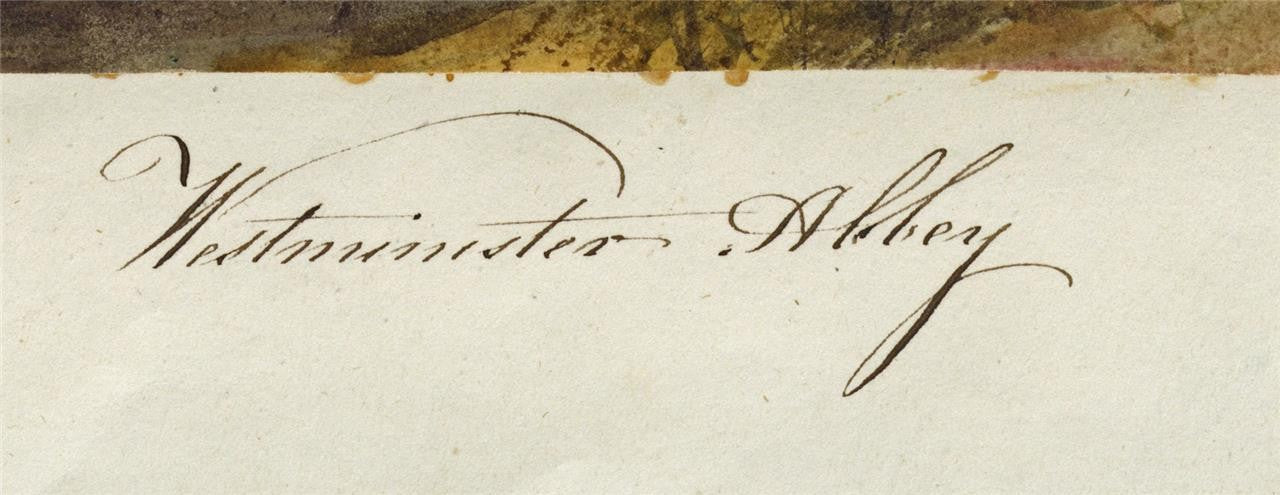 Westminster Abbey